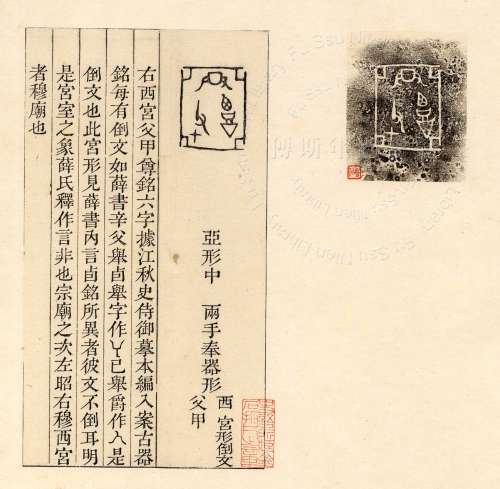 亞形中
兩手奉器形
西宮形倒文
父甲
右西宮父甲尊銘六字據江秋史侍御摹本編入案古器
銘每有倒文如薛書辛父舉卣舉字作丫己舉爵作人是
倒文也此宮形見薛書內言卣銘所異者彼文不倒耳明
是宮室之象薛氏釋作言非也宗廟之次左昭右穆西宮
者穆廟也
傅斯年
Fu Ssu Nien Library